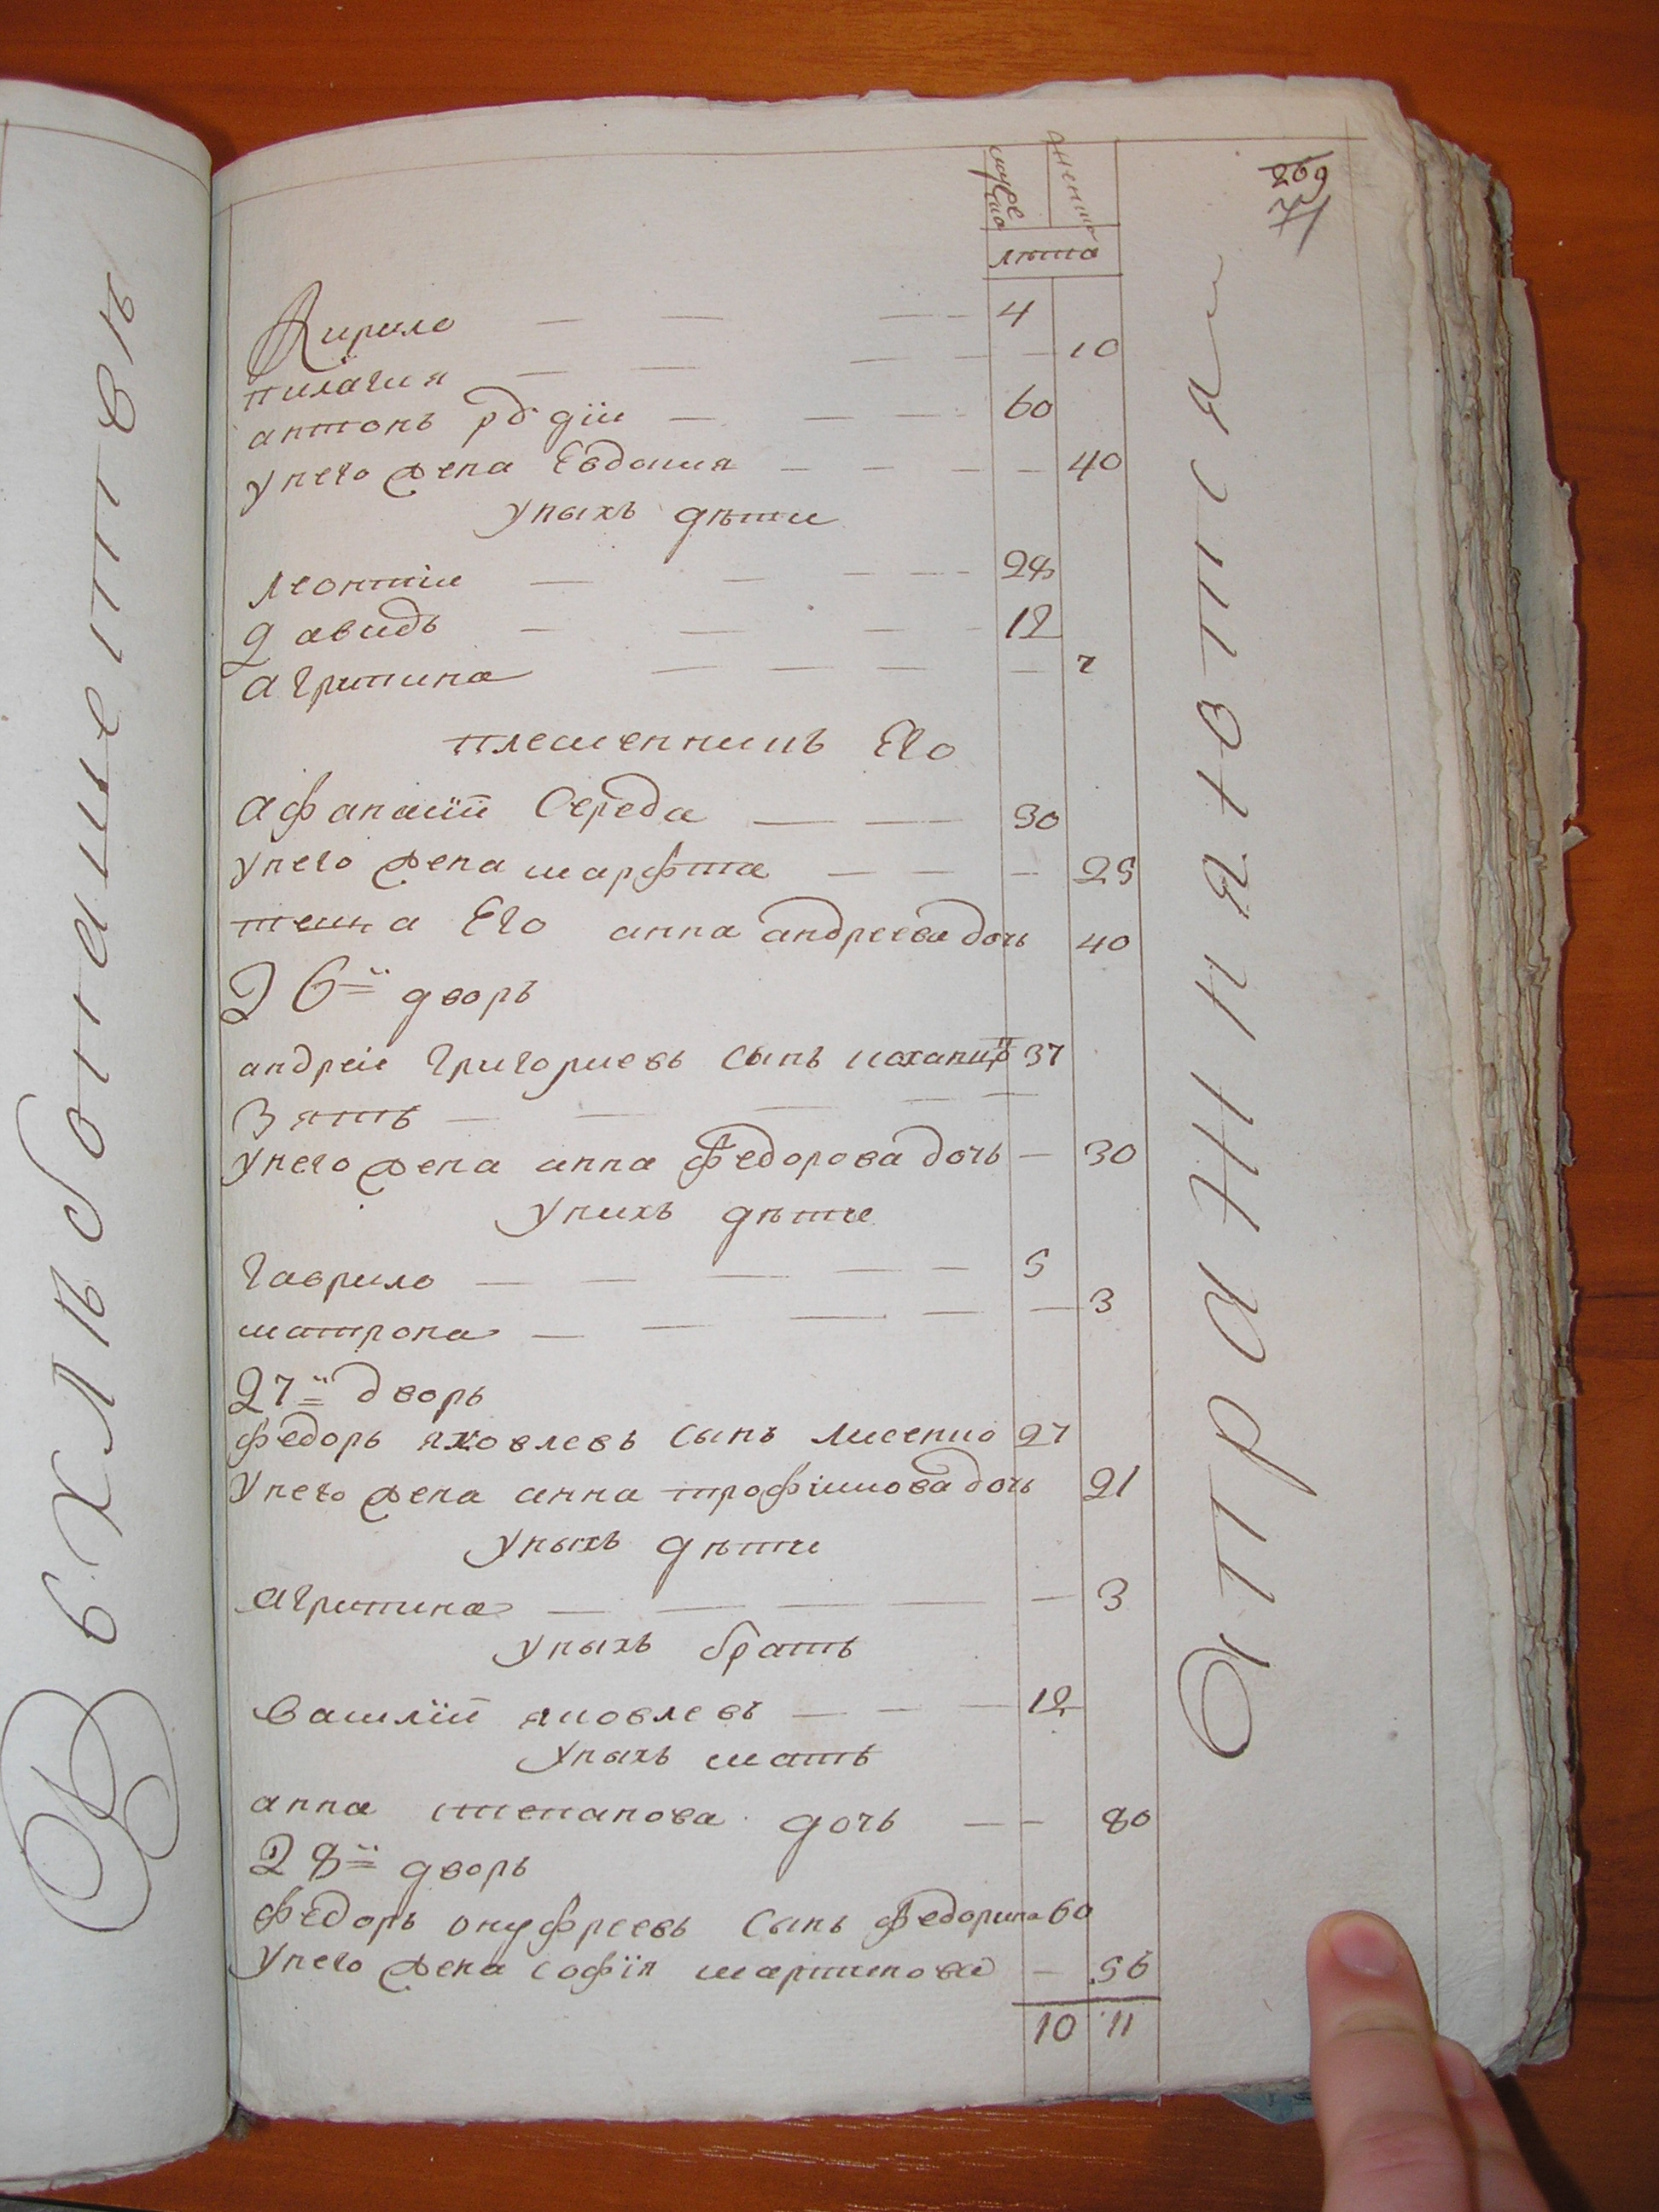 В хлѣбопашестве
269
71
мужеска
женска
лѣта
Кирило 4
пилагия 10
антонъ 60
унего жена Евдокия 40
уныхъ дѣти
леонтіи 28
давидъ 12
агрипина 7
племенникъ Его
афанасїй Середа 30
унего жена марфта 25
теща Его анна андреева дочь 40
26й дворъ
андреи григориевъ сынъ 37
Зять
унего жена анна федорова дочь 30
унихъ дѣти
гаврило 5
матрона 3
27й дворъ
федоръ яковлевъ сынъ лисенко 27
унего жена анна трофимова дочь 21
уныхъ дѣти
агрипина 3
уныхъ братъ
василїй яковлевъ 12
уныхъ мать
анна степанова дочь 80
28й дворъ
федоръ онуфреевъ сынъ федорина 60
унего жена софїя мартинова 56
10 11
Упражняются